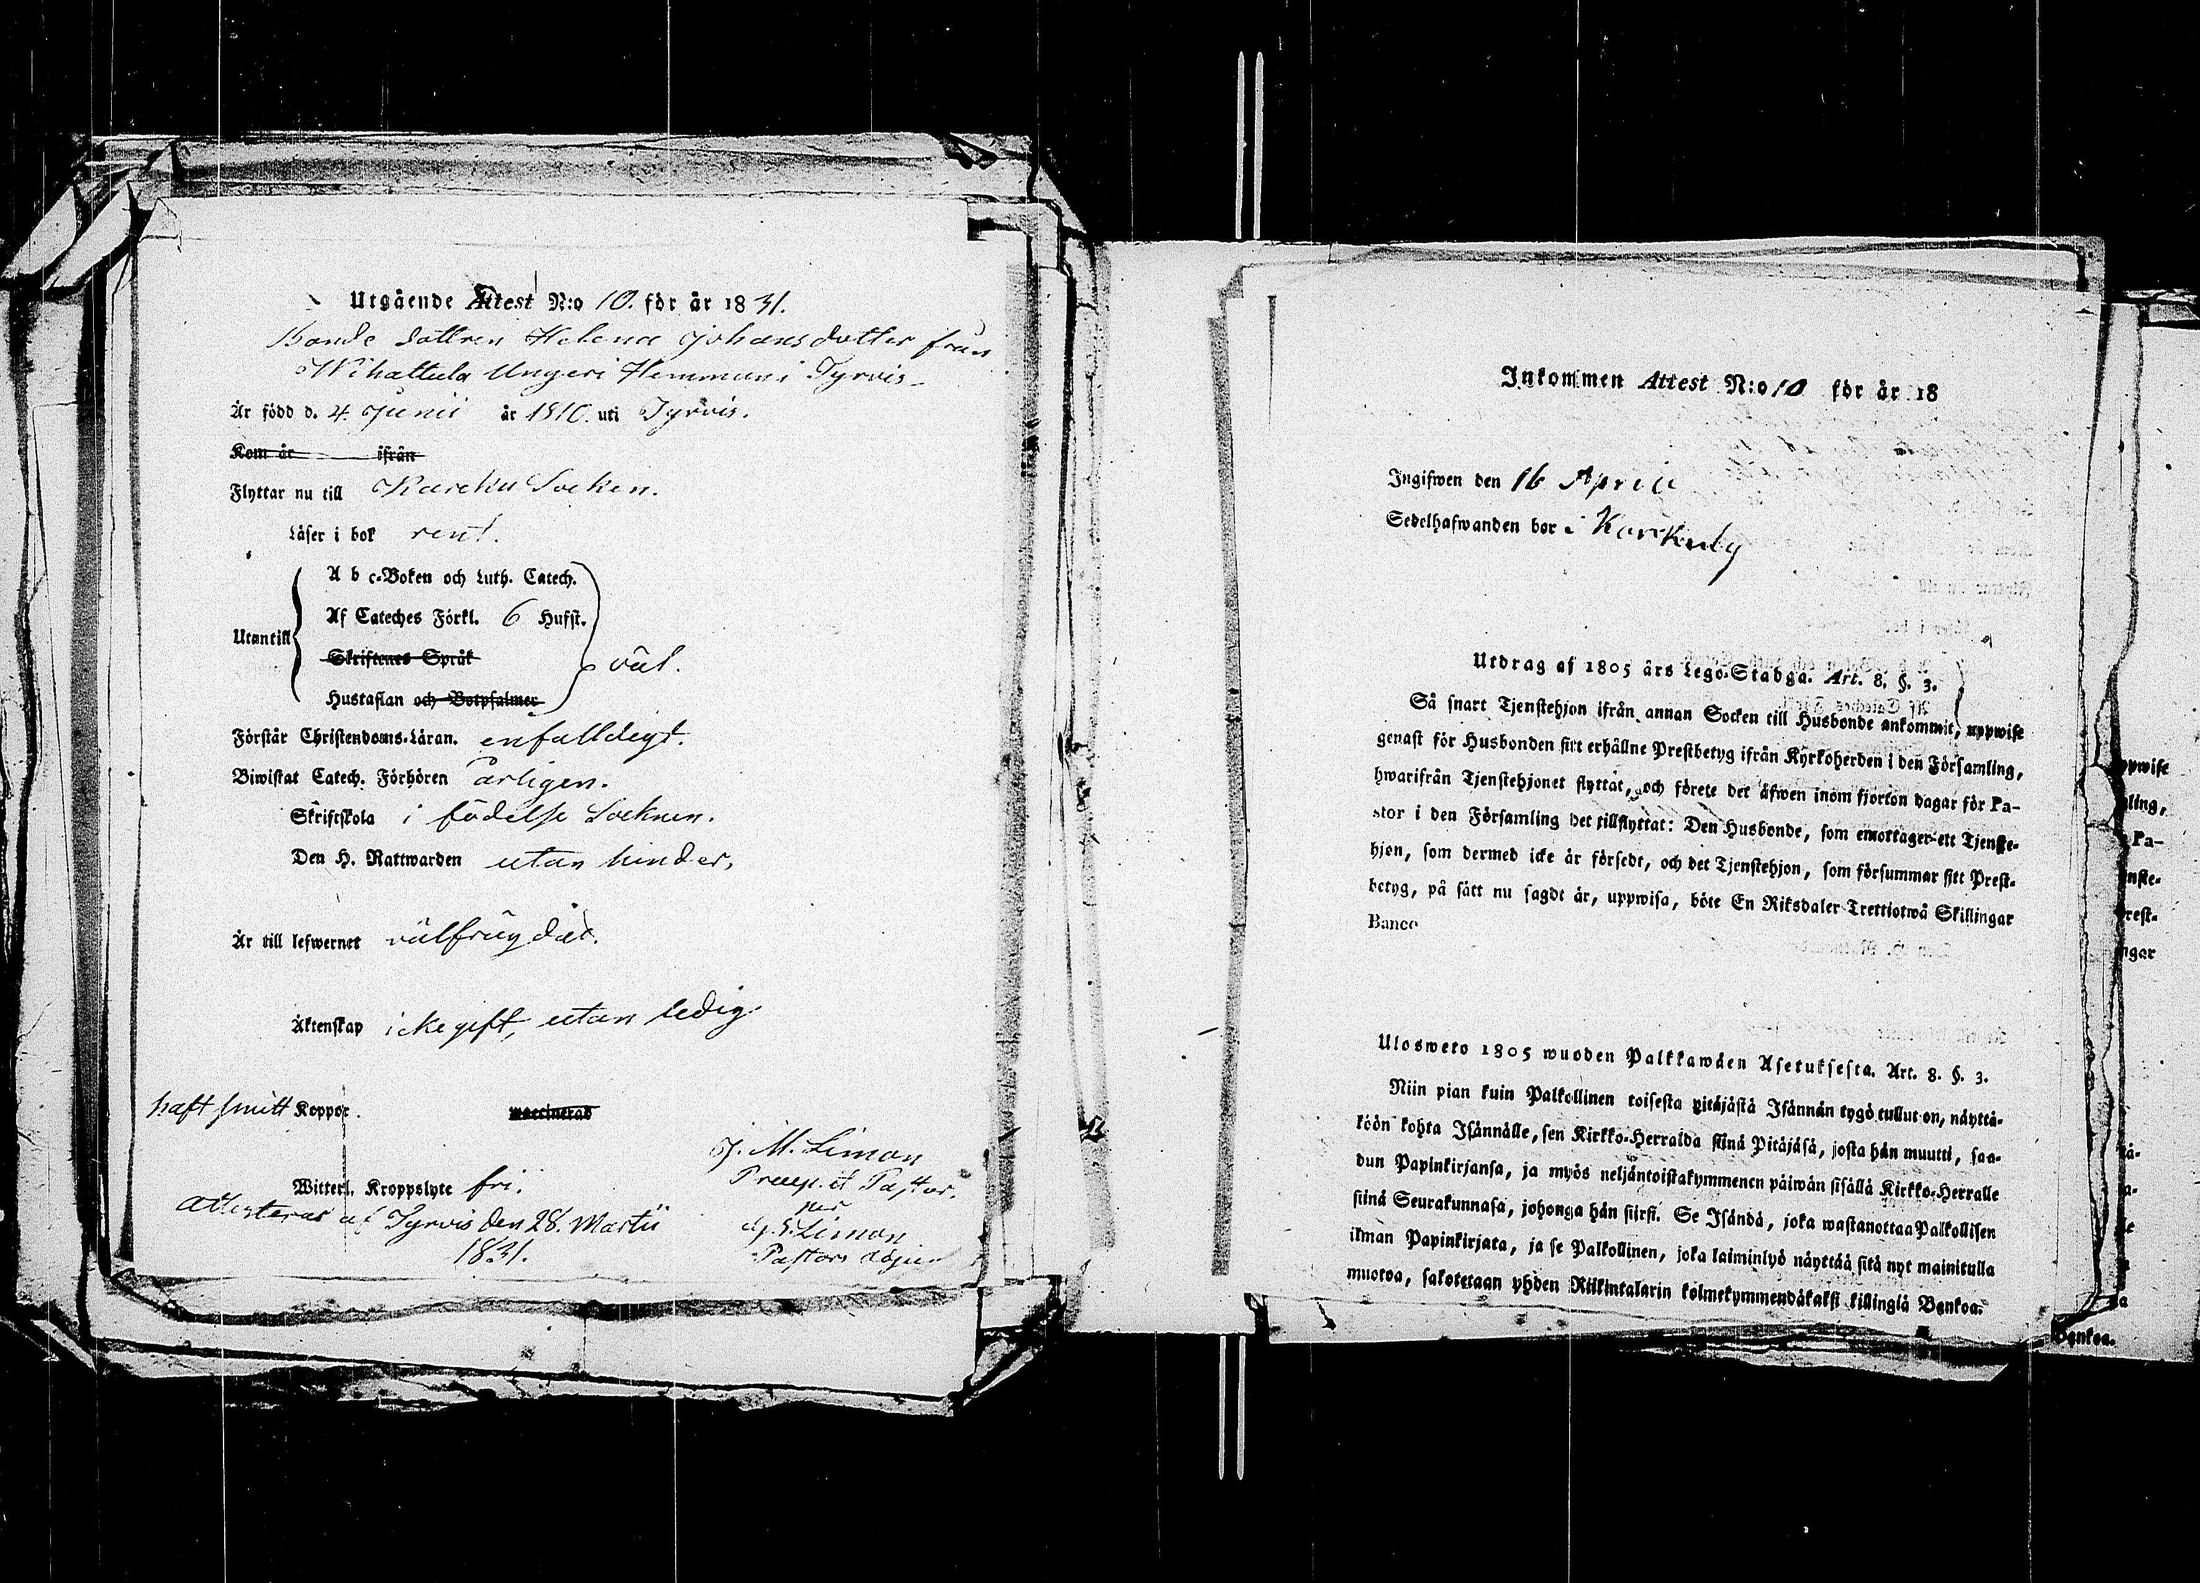 Utgående Attest N:o 10. för år 1831.
Bonde dottren Helena Johansdotter från
Wihattula Ungeri Hemman i Tyrvis
Är född d. 4. Junii år 1810. uti Tyrvis.
Kom år ifrån
Flyttar nu till Karcku Socken.
Läser i bok rent.
A b c-Boken och Luth. Catech.
Af Cateches Förkl. 6 Hufst.
Utantill
Skriftenes Språk
väl.
Hustaflan och Botpsalmer
Förstår Christendoms-Läran. enfalldigt.
Biwistat Catech. Förhören årligen.
Skriftskola i födelse Socknen.
Den H. Nattwarden utan hinder,
Är till lefwernet välfrägdad.
Äktenskap icke gift, utan ledig
haft smitt Koppor.
waccinerad
J. M. Limon
Witterl. Kroppslyte fri.
Præp. et Pastor.
Attesteras af Tyrvis den 28. Martii
per
1831.
Limon
Pastors adju
Inkommen Attest N:o 10 för år 18
Ingifwen den 16 April
Sedelhafwanden bor i Karckuby
Utdrag af 1805 års Lego-Stadga. Art. 8. §. 3.
Så snart Tjenstehjon ifrån annan Socken till Husbonde ankommit, uppwise
genast för Husbonden sitt erhållne Prestbetyg ifrån Kyrkoherden i den Församling,
hwarifrån Tjenstehjonet flyttat, och förete det äfwen inom fjorton dagar för Pa-
stor i den Församling det tillflyttat: Den Husbonde, som emottager ett Tjenste-
hjon, som dermed icke är försedt, och det Tjenstehjon, som försummar sitt Prest-
betyg, på sätt nu sagdt är, uppwisa, böte En Riksdaler Trettiotwå Skillingar
Banco
Ulosweto 1805 wuoden Palkkawäen Asetuksesta. Art. 8. §. 3.
Niin pian kuin Palkollinen toisesta pitäjästä Isännän tygö tullut on, näyttä-
köön kohta Isännälle, sen Kirkko-Herralda siinä Pitäjäsä, josta hän muutti, saa-
dun Papinkirjansa, ja myös neljäntoistakymmenen päiwän sisällä Kirkko-Herralle
siinä Seurakunnasa, johonga hän siirsi. Se Isändä, joka wastanottaa Palkollisen
ilman Papinkirjata, ja se Palkollinen, joka laiminlyö näyttää sitä nyt mainitulla
muotoa, sakotetaan yhden Riikintalarin kolmekymmendäkaksi killinglä Bankoa.
ppwise
ling,
Pa-
nste-
rest-
ngar
Bankoa.